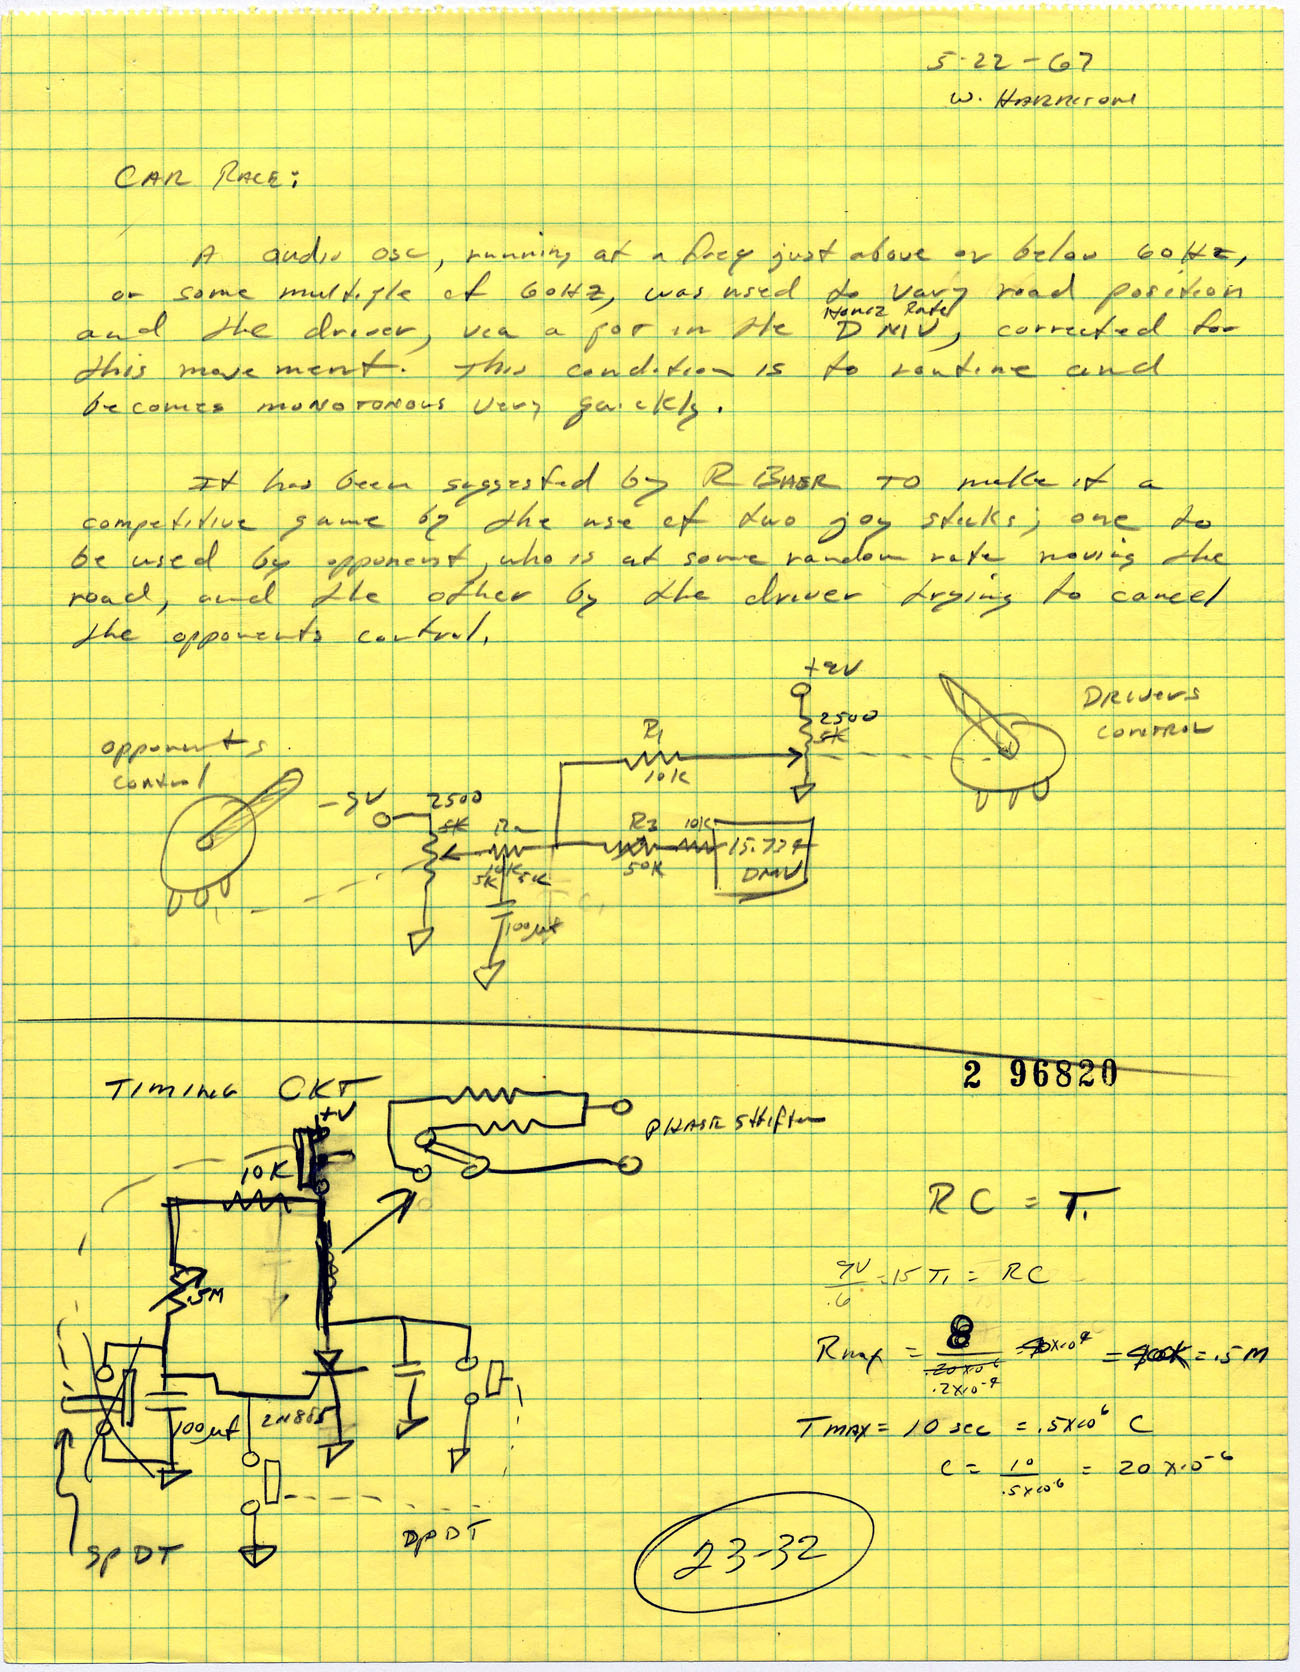 5-22-67
W. HARRISON
CAR RACE:
A audio osc, running at a freq just above or below 60HZ,
or some multiple of 60HZ, was used to vary road position
Horiz Rate
and the driver, via a pot in the DMV, corrected for
this movement. This condition is to routine and
becomes monotonous very quickly.
It has been suggested by R BAER TO make it a
competitive game by the use of two joy sticks; one to
be used by opponent, who is at some random rate moving the
road, and the other by the driver trying to cancel
the opponents control.
+9V
2500
5K
DRIVERS
CONTROL
R1
10K
opponents
control
-9V
2500
5K
10K
5K 5K
R3
50K
10K
15.734
DMV
100µf
C1
2 96820
TIMING CKT
+V
PHASE Shifter
10K
.5M
100µf
2N885
SPDT
DPDT
RC = T1
9V/.6 = 15 T1 = RC
Rmax = 8/.2x10-4 = = 400K = .5M
TMAX = 10 sec = .5x10⁶ C
C = 10/.5x10⁶ = 20 x10-6
23-32